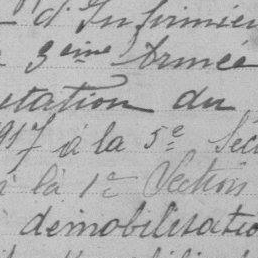 d'Infirmier
3ème Armée
tation du
1917 à la 5e Sec
à la 1re Section
démobilisatio